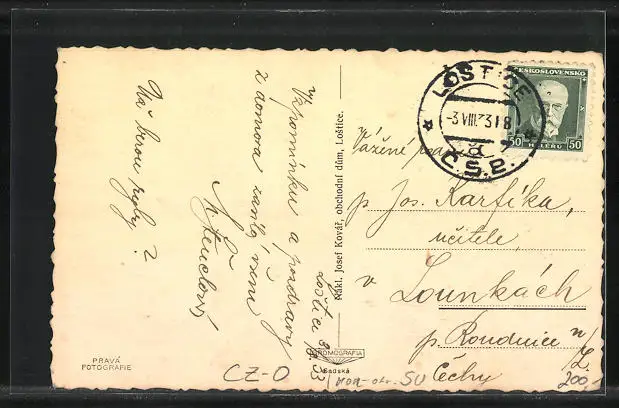 Vzpomínku a pozdravy
z domova zasílá všem
Loštice 3/8 33
Nákl. Josef Kovář, obchodní dům, Loštice.
LOSTICE
-3.VIII.33 18
a
Č.S.P.
ČESKOSLOVENSKO
50 HALÉŘŮ 50
Vážená
p Jos. Karfíka,
učitele,
v Lounkách
p. Roudnice n/L.
Čechy
PRAVÁ
FOTOGRAFIE
FROMOGRAFIA
Sadská
CZ-O
SU
200,-